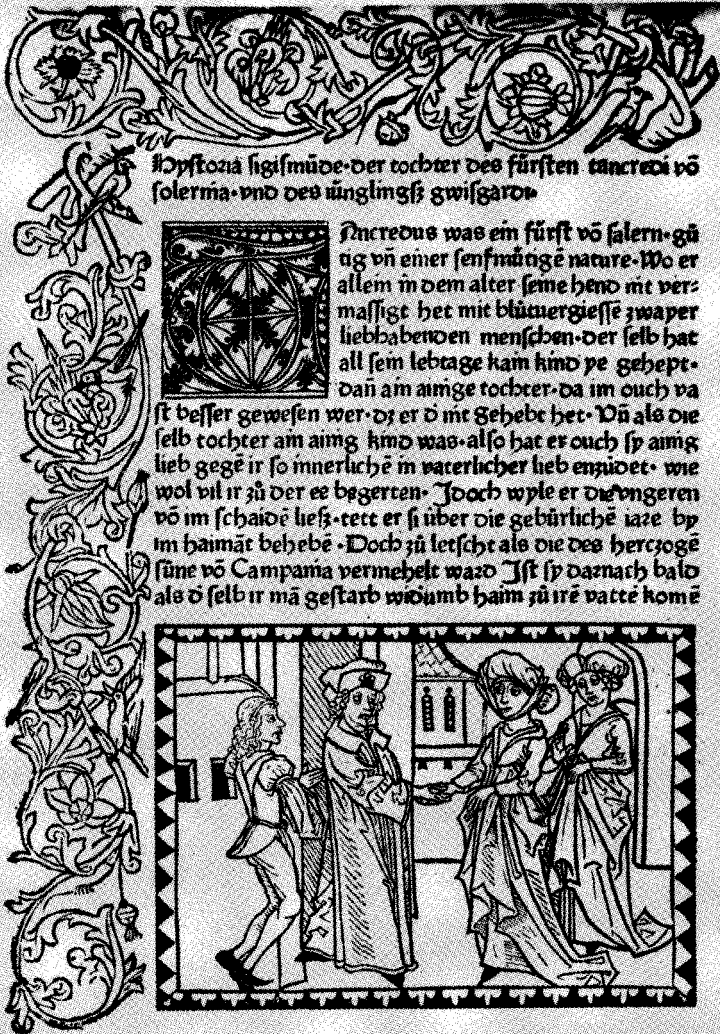 Hystoria sigismūde·der tochter des fürsten tancredi vō
solernia·vnd des iünglingß gwisgardi·
TAncredus was ein fürst vō salern·gü
tig vn̄ einer senfmütigē nature·Wo er
allein in dem alter seine hend nit ver⸗
massigt het mit blůtuergiessē zwayer
liebhabenden menschen·der selb hat
all sein lebtage kain kind ye gehept·
dan̄ ain ainige tochter·da im ouch va
st besser gewesen wer·dz er d̄ nit gehebt het·Vn̄ als die
selb tochter ain ainig kind was·also hat er ouch sy ainig
lieb gegē ir so innerlichē in vaterlicher lieb enzüdet·wie
wol vil ir zů der ee begerten·Jdoch wyle er die vngeren
vō im schaidē ließ·tett er si über die gebürlichē iare by
im haimāt behebē·Doch zů letscht als die des herczogē
süne vō Campania vermehelt ward Jst sy darnach bald
als d̄ selb ir mā gestarb widumb haim zů irē vatte komē